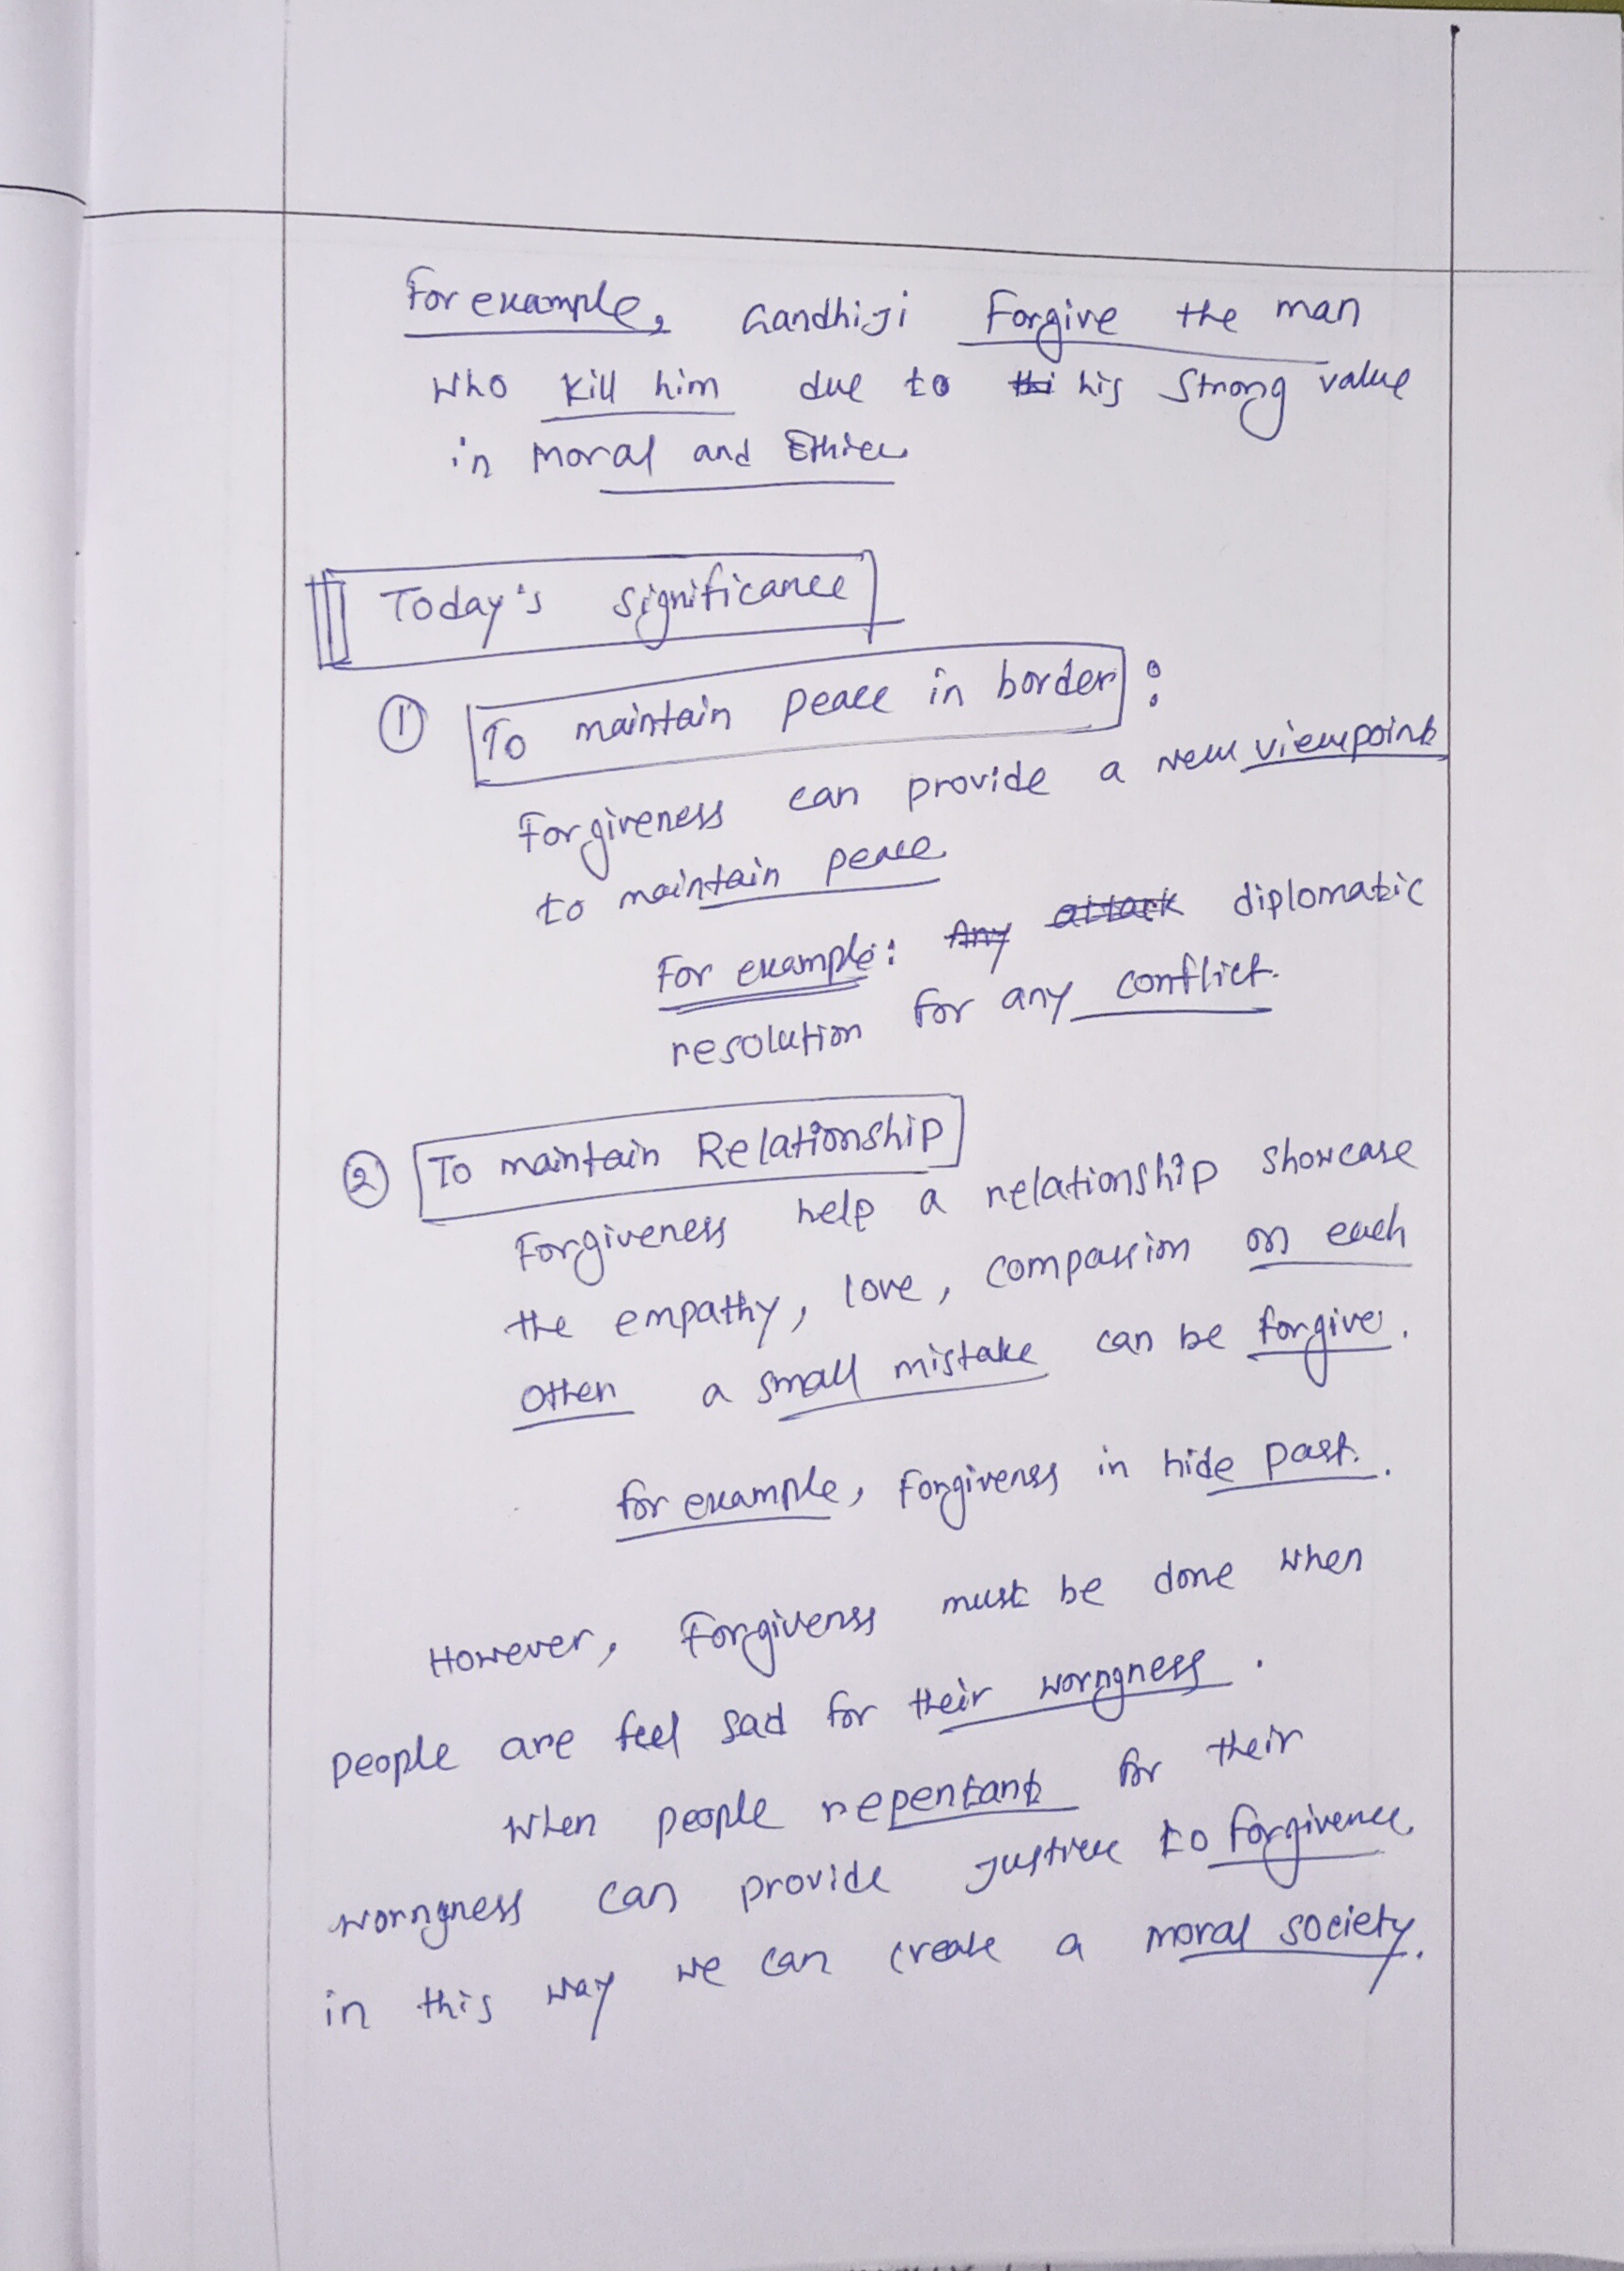 For example, Gandhiji Forgive the man
who kill him due to his strong value
in moral and Ethics
Today's significance
① To maintain peace in border :
Forgiveness can provide a new viewpoint
to maintain peace
For example : Any attack diplomatic
resolution for any conflict.
② To maintain Relationship
Forgiveness help a relationship showcase
the empathy, love, compassion on each
other a small mistake can be forgive.
for example, Forgivenss in hide past.
However, Forgivenss must be done when
people are feel sad for their worngness.
when people repentant for their
worngness can provide justice to forgivence
in this way we can create a moral society.